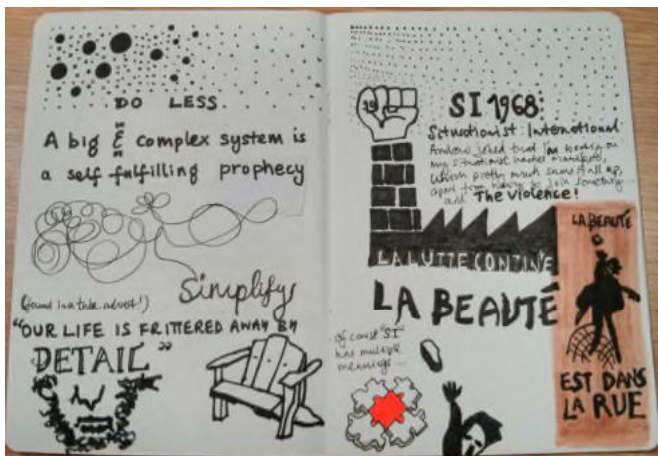 DO LESS.
A big & complex system is
a self fulfilling prophecy
Simplify
(found in a take advert!)
"OUR LIFE IS FRITTERED AWAY BY
DETAIL"
19
SI 1968:
Situationist International
Andrew joked that I'm working on
my situationist hacker manifesto,
which pretty much sums it all up,
apart from having to join something
and The violence!
LA LUTTE CONTINUE
LA BEAUTÉ
LA BEAUTÉ
EST DANS
LA RUE
of course "SI"
has multiple
meanings...